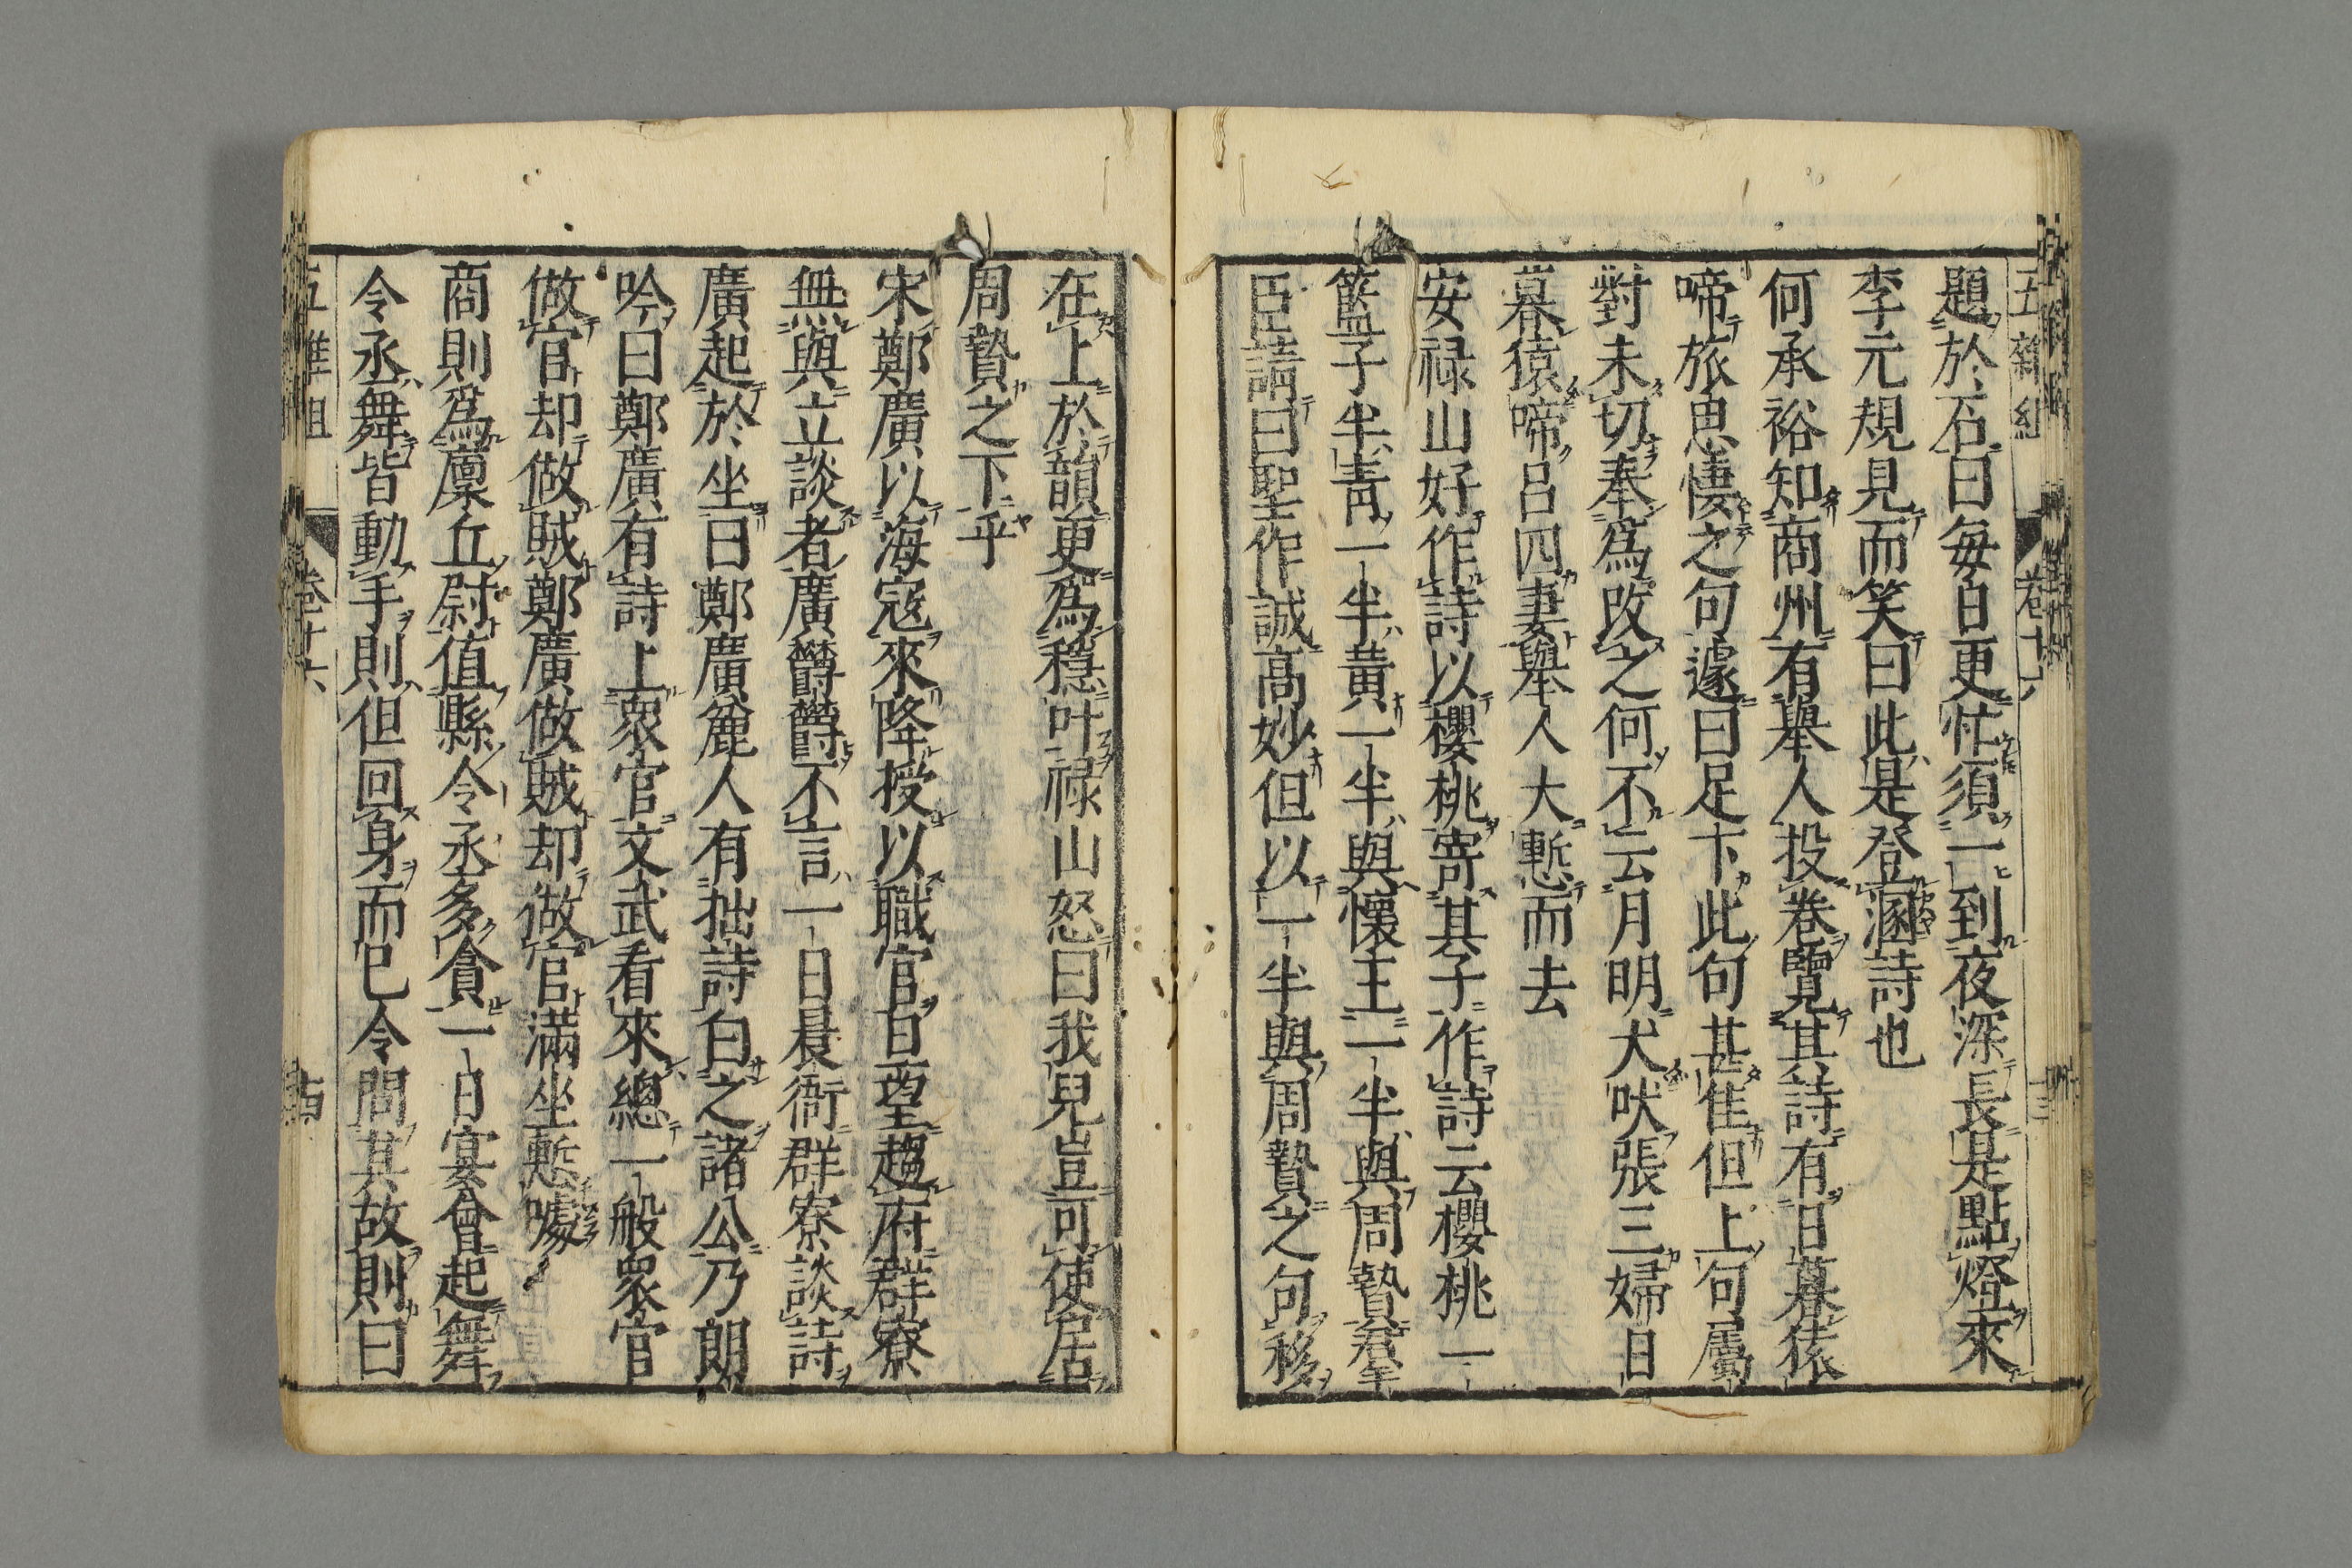 五雜組 卷十六 十三
題於石曰每日更忙須一到夜深長是點燈來
李元規見而笑曰此是登溷詩也
何承裕知商州有舉人投卷覽其詩有日暮猿
啼旅思悽之句遽曰足下此句甚佳但上句屬
對未切奉爲改之何不云月明犬吠張三婦日
暮猿啼呂四妻舉人大慙而去
安禄山好作詩以櫻桃寄其子作詩云櫻桃一
籃子半青一半黃一半與懷王一半與周贄羣
臣請曰聖作誠高妙但以一半與周贄之句移
在上於韻更爲穩叶禄山怒曰我兒豈可使居
周贄之下乎
宋鄭廣以海寇來降授以職官旦望趨府群寮
無與立談者廣鬱鬱不言一日晨衙群寮談詩
廣起於坐曰鄭廣麄人有拙詩白之諸公乃朗
吟曰鄭廣有詩上衆官文武看來總一般衆官
做官却做賊鄭廣做賊却做官滿坐慙噱
商則爲廩丘尉值縣令丞多貪一日宴會起舞
令丞舞皆動手則但回身而已令問其故則曰
五雜組 卷十六 十四